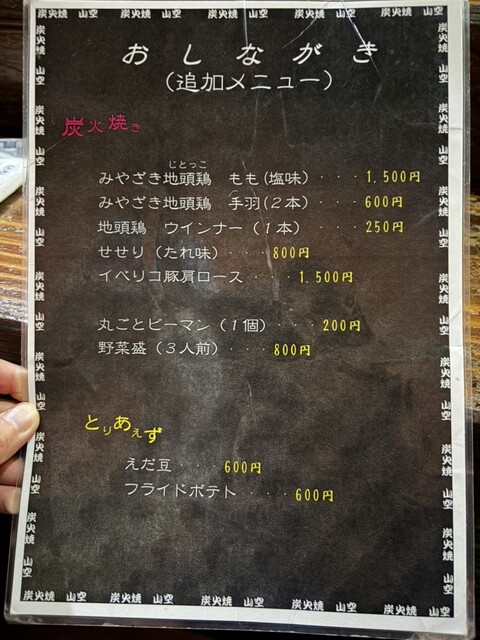 炭火焼 山空 炭火焼 山空 炭火焼 山空 炭火焼 山空 炭火焼 山空
おしながき
(追加メニュー)
炭火焼き
じとっこ
みやざき地頭鶏 もも(塩味)・・・1,500円
みやざき地頭鶏 手羽(2本)・・・600円
地頭鶏 ウインナー(1本)・・・250円
せせり(たれ味)・・・800円
イベリコ豚肩ロース・・・・1,500円
丸ごとピーマン(1個)・・・200円
野菜盛(3人前)・・・800円
とりあえず
えだ豆・・・600円
フライドポテト・・・600円
炭火焼 山空 炭火焼 山空 炭火焼 山空 炭火焼 山空 炭火焼 山空